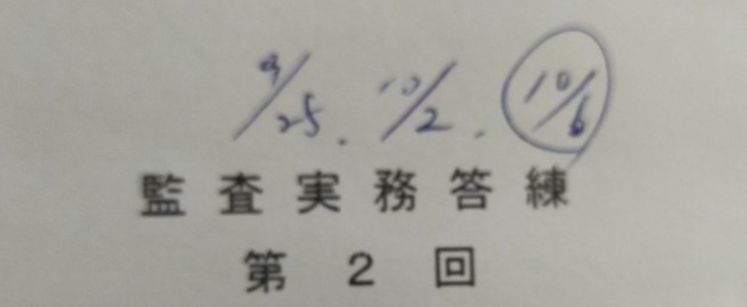 9/25. 10/2. 10/6
監査実務答練
第2回